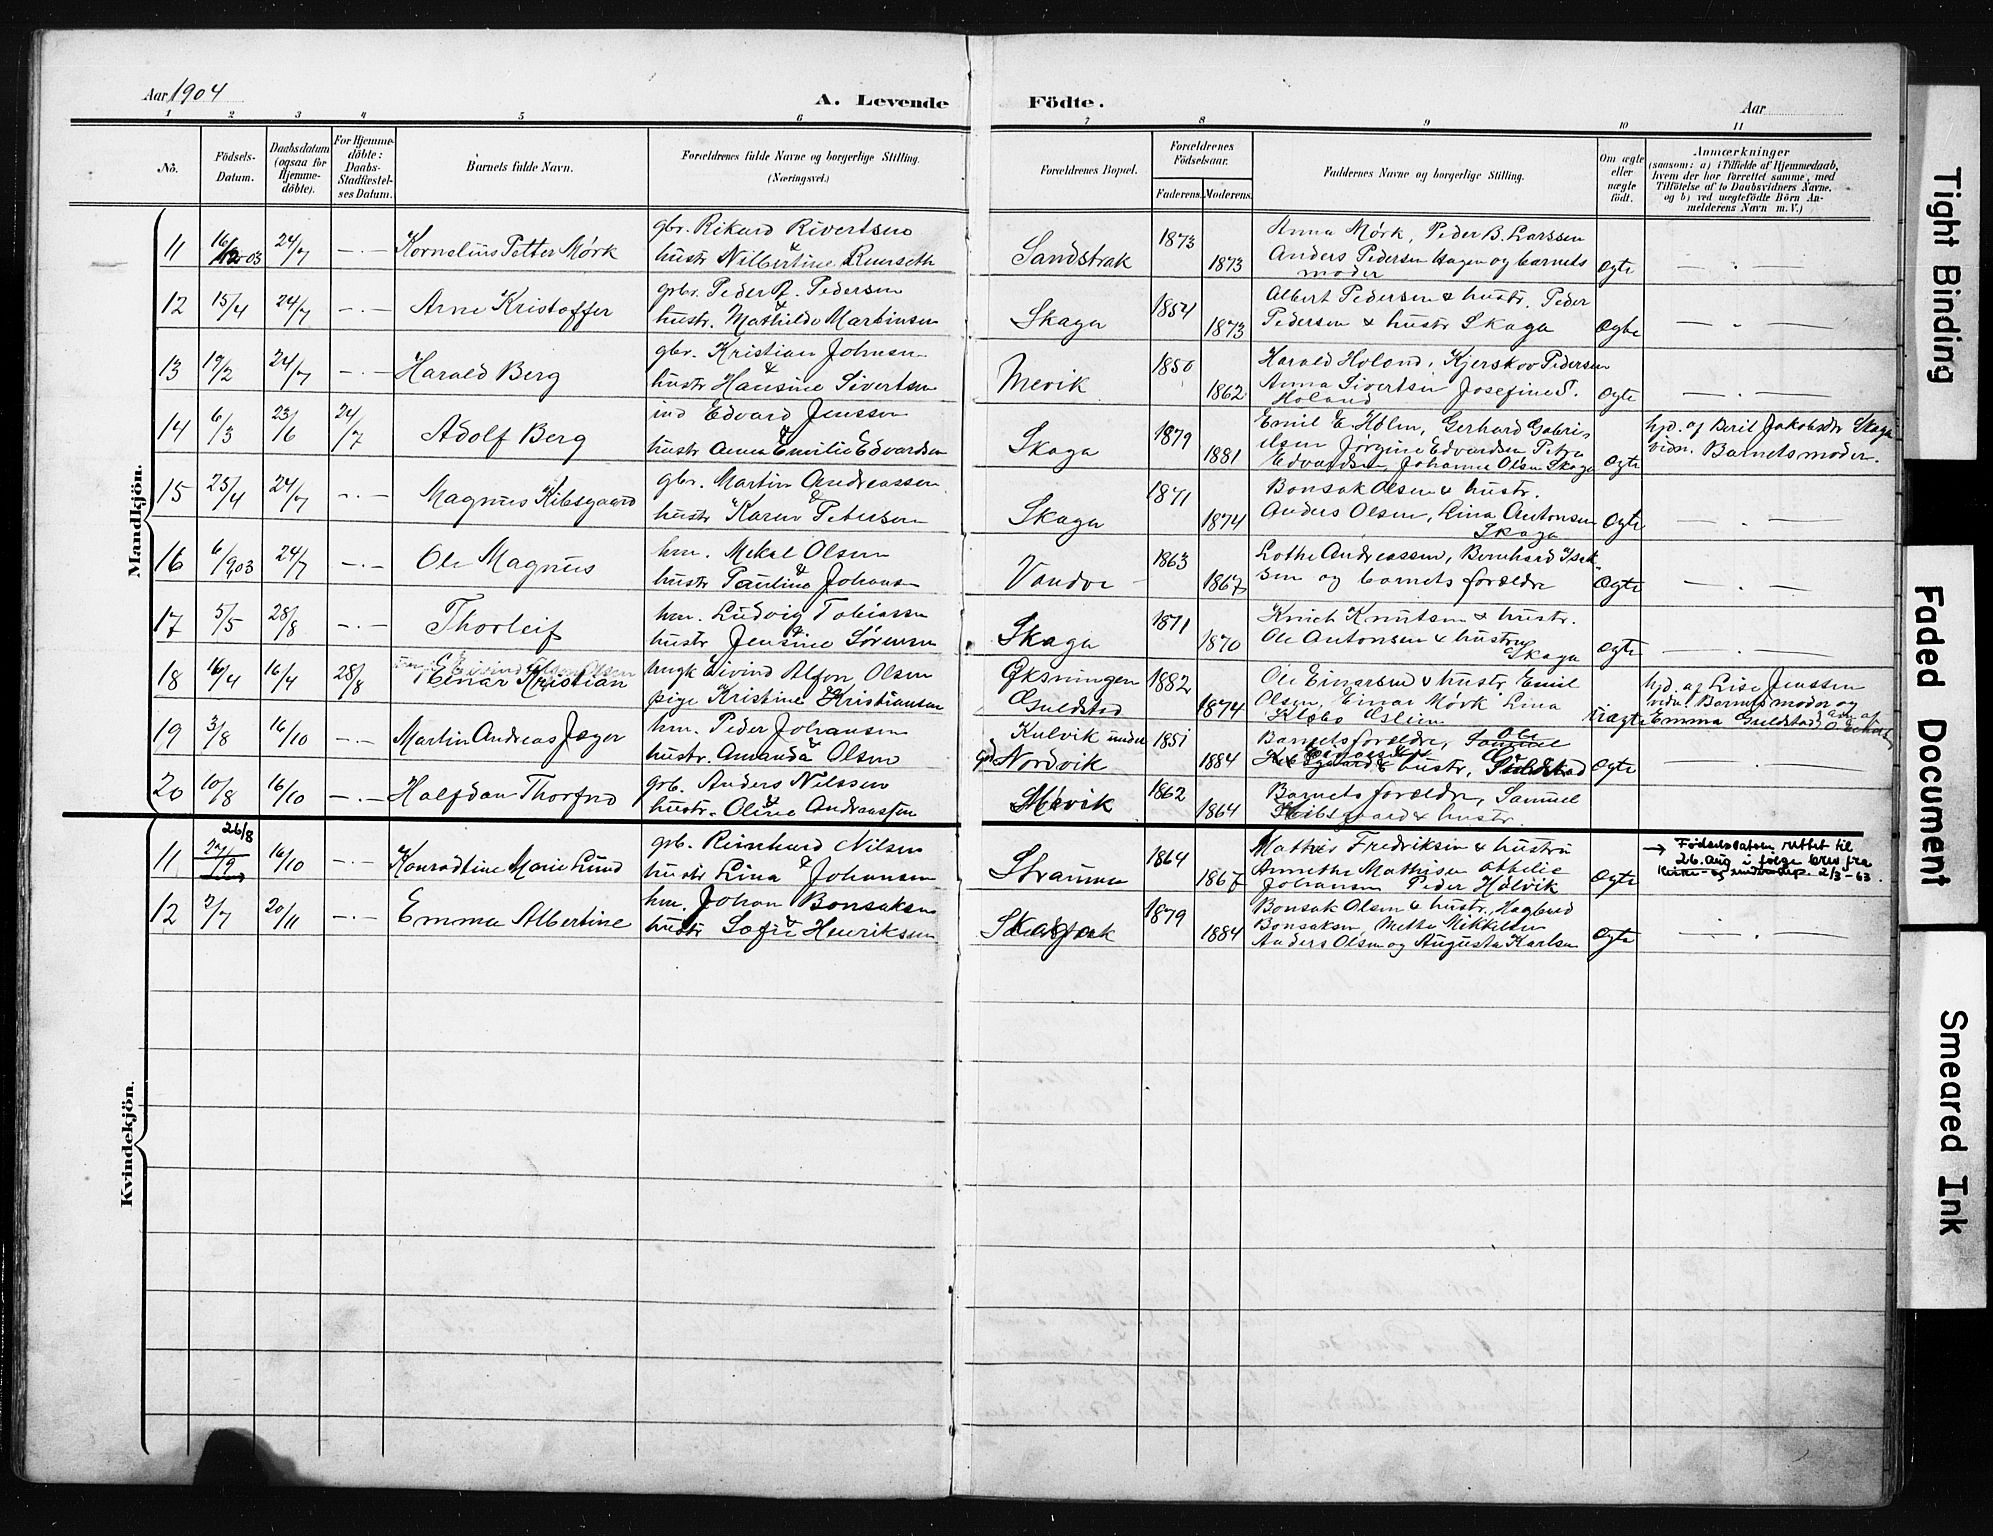 Aar 1904
A. Levende Födte.
Aar
1 2 3 4 5 6 7 8 9 10 11
No.
Födsels-Datum.
Daabsdatum (ogsaa for Hjemmedöbte).
For Hjemmedöbte: Daabs-Stadfæstelses Datum.
Barnets fulde Navn.
Forældrenes fulde Navne og borgerlige Stilling.
(Næringsvei.)
Forældrenes Bopæl.
Forældrenes Födselsaar.
Faderens. Moderens.
Faddernes Navne og borgerlige Stilling.
Om ægte eller uægte födt.
Anmærkninger
(saasom: a) i Tilfælde af Hjemmedaab,
hvem der har forrettet samme, med
Tilföielse af to Daabsvidners Navne.
og b) ved uægtefödte Börn An-
melderens Navn m. V.)
Mandkjön.
11 16/12 03 24/7 —·— Kornelius Petter Mørk
gbr. Rikard Rivertsen &
hustr Nilbertine Reinseth
Sandstrak 1873 1873
Anna Mørk, Peder B. Larssen
Anders Pedersen Hagen og barnets
moder
Ægte
12 15/4 24/7 —·— Arne Kristoffer
gbr. Peder A. Pedersen &
hustr. Mathilde Martinsen
Skaga 1854 1873
Albert Pedersen & hustr. Peder
Pedersen & hustr Skaga
Ægte
13 19/2 24/7 —·— Harald Berg
gbr. Kristian Johnsen &
hustr Hansine Sivertsen
Mevik 1850 1862
Harald Holand, Kjerskov Pedersen
Anna Sivertsen Josefine P.
Holand
Ægte
14 6/3 23/6 24/7 Adolf Berg
ind Edvard Jenssen &
hustr Anna Emilie Edvardsen
Skaga 1879 1881
Emil E Holm, Gerhard Gabri-
elsen Jørgine Edvardsen Petra
Edvardsen, Johanna Olsen Skaga
Ægte
hjd. af Beril Jakobsdr Skaga
vidn. Barnets moder.
15 23/4 24/7 —·— Magnus Kibsgaard
gbr. Martin Andreassen &
hustr Karen Petersen
Skaga 1871 1874
Bonsak Olsen & hustr.
Anders Olsen, Lina Antonsen
Skaga
Ægte
16 6/9 03 24/7 —·— Ole Magnus
hm. Mekal Olsen &
hustr Pauline Johans
Vandve 1863 1867
Lothe Andreassen, Bernhard Isak-
sen og barnets forældre
Ægte
17 5/5 28/8 —·— Thorleif
hm. Ludvig Tobiassen &
hustr Jensine Sørensen
Skaga 1871 1870
Knut Knutsen & hustr.
Ole Antonsen & hustru
Skaga
Ægte
18 16/4 16/4 28/8 Einar Kristian
ungk Eivind Alfon Olsen
pige Kristine Kristiansen
Øksningen
Guldstad 1882 1874
Ole Einarsen & hustr, Emil
Olsen, Einar Mørk Lina
Uægte
hjd. af Lise Jenssen
vidn. Barnets moder og
Emma Guldstad,
19 3/8 16/10 —·— Martin Andreas Jæger
hm. Peder Johansen &
hustr. Amanda Olsen
Kulvik under
gd Nordvik 1851 1884
Barnets forældre,
& hustr,
Ægte
20 10/8 16/10 —·— Halfdan Thorfred
grb. Anders Nilssen &
hustr. Oline Andreassen
Mevik 1862 1864
Barnets forældre, Samuel
Kibsgaard & hustr.
Kvindekjön.
11 26/8 16/10 —·— Konradtine Marie Lund
grb. Reinhard Nilsen &
hustr Lina Johansen
Straumen 1864 1867
Mathis Fredriksen & hustru
Annethe Mathisen Othilie
Johansen Peder Holvik
Ægte
→ Fødselsdatoen rettet til
26. aug i følge brev fra
Kirke- og undervdep. 2/3-63.
12 2/7 20/11 —·— Emma Albertine
hm. Johan Bonsaksen &
hustr Sofie Henriksen
1879 1884
Bonsak Olsen & hustr, Hagbard
Bonsaksen, Mette Mikkelsen
Anders Olsen og Augusta Karlsen
Ægte
Tight Binding
Faded Document
Smeared Ink